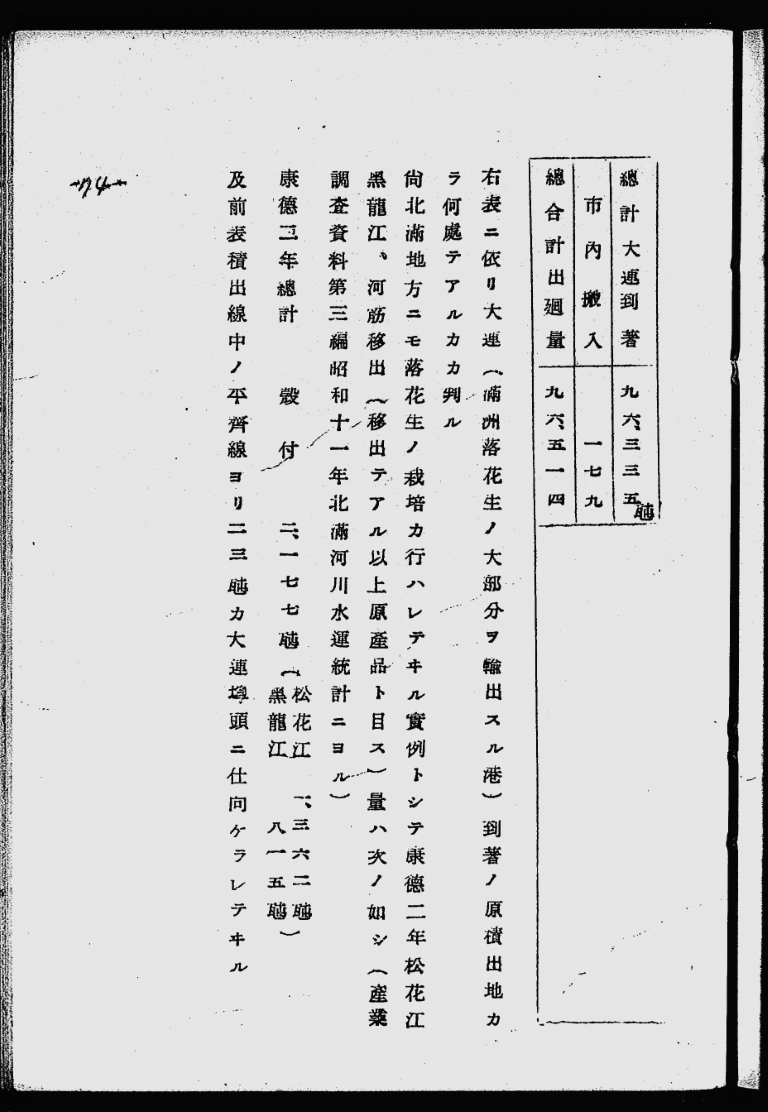 總計大連到著 九六、三三五瓲
市內搬入 一七九
總合計出廻量 九六、五一四
右表ニ依リ大連(滿洲落花生ノ大部分ヲ輸出スル港)到著ノ原積出地カ
ラ何處テアルカカ判ル
尙北滿地方ニモ落花生ノ栽培カ行ハレテヰル實例トシテ康德二年松花江
黑龍江、河筋移出(移出テアル以上原產品ト目ス)量ハ次ノ如シ(產業
調査資料第三編昭和十一年北滿河川水運統計ニヨル)
康德二年總計 殼付 二、一七七瓲(松花江 一、三六二瓲
黑龍江 八一五瓲)
及前表積出線中ノ平齊線ヨリ二三瓲カ大連埠頭ニ仕向ケラレテヰル
-74-